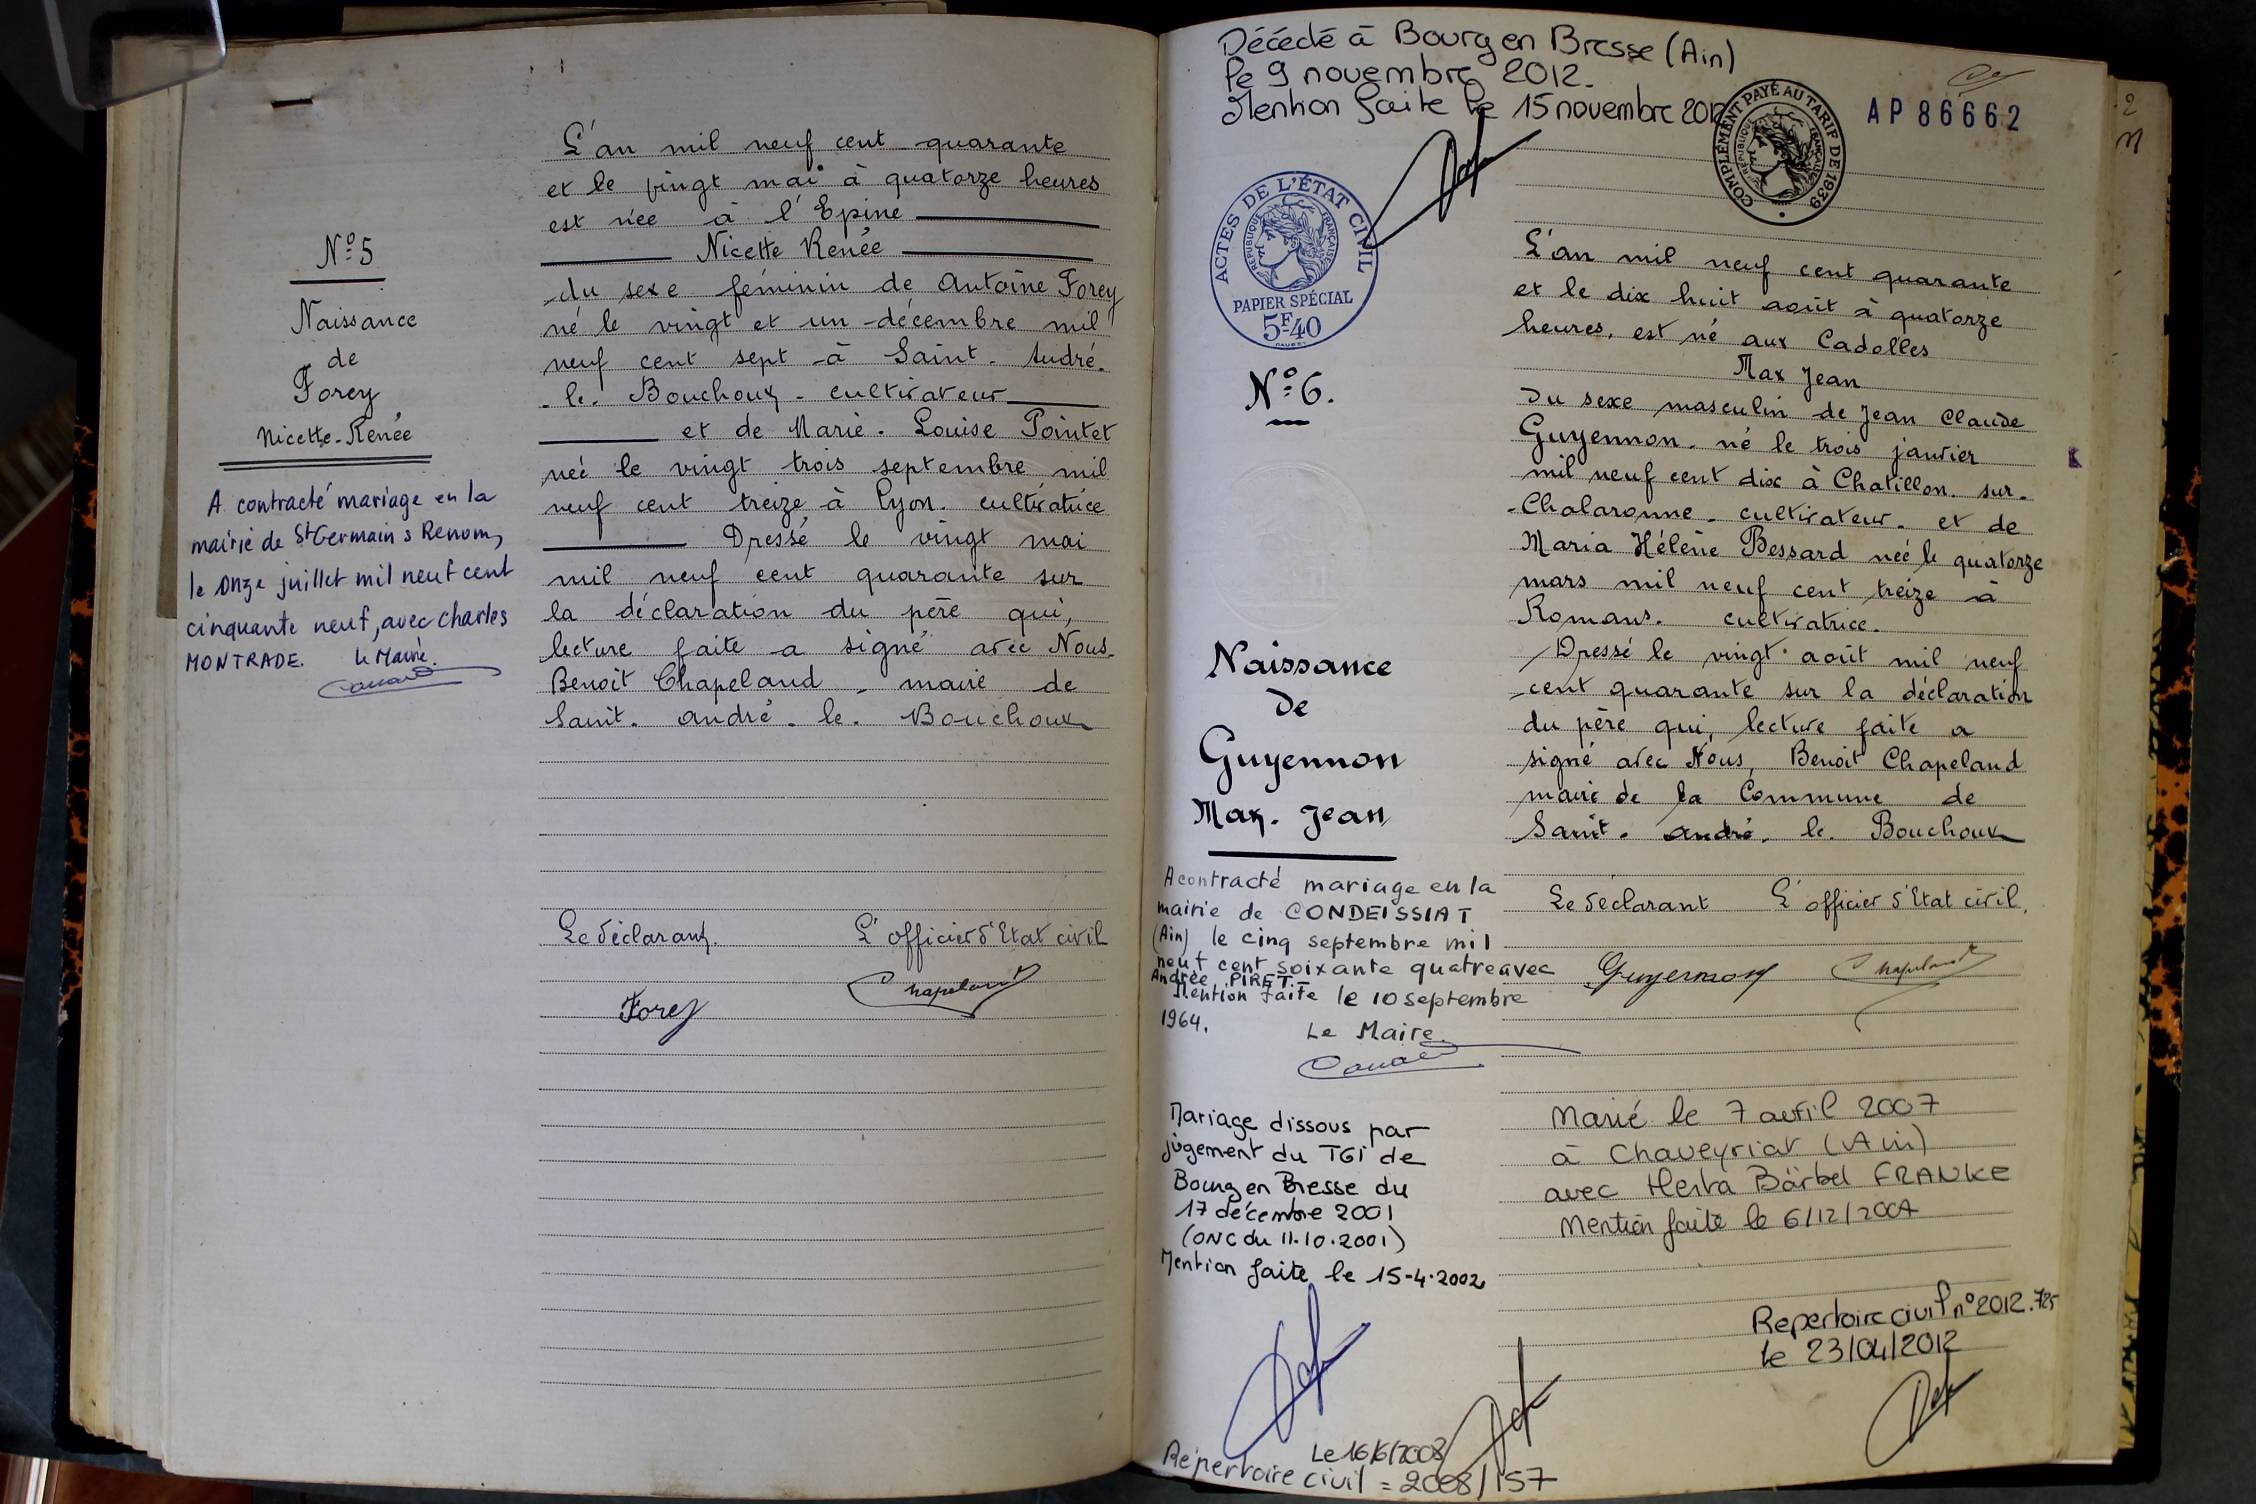 N° 5
Naissance
de
Forey
Nicette-Renée
A contracté mariage en la
mairie de St Germain s Renom,
le onze juillet mil neuf cent
cinquante neuf, avec Charles
MONTRADE. Le Maire.
L'an mil neuf cent quarante
et le vingt mai à quatorze heures
est née à l'Epine
Nicette Renée
du sexe féminin de Antoine Forey
né le vingt et un décembre mil
neuf cent sept à Saint-André-
-le-Bouchoux - cultivateur
et de Marie-Louise Pointet
née le vingt trois septembre mil
neuf cent treize à Lyon. cultivatrice
Dressé le vingt mai
mil neuf cent quarante sur
la déclaration du père qui,
lecture faite a signé avec Nous
Benoit Chapeland, maire de
Saint-André-le-Bouchoux
Le déclarant. L'officier d'Etat civil
Forey Chapeland
Décédé à Bourg en Bresse (Ain)
le 9 novembre 2012.
Mention faite le 15 novembre 2012
COMPLÉMENT PAYÉ AU TARIF DE 1939
RÉPUBLIQUE FRANÇAISE
AP 86662
ACTES DE L'ÉTAT CIVIL
RÉPUBLIQUE FRANÇAISE
PAPIER SPÉCIAL
5F40
N° 6.
Naissance
de
Guyennon
Max-Jean
L'an mil neuf cent quarante
et le dix huit août à quatorze
heures, est né aux Cadolles
Max Jean
Du sexe masculin de Jean Claude
Guyennon. né le trois janvier
mil neuf cent dix à Chatillon-sur-
-Chalaronne - cultivateur - et de
Maria Hélène Bessard née le quatorze
mars mil neuf cent treize à
Romans. cultivatrice.
Dressé le vingt août mil neuf
cent quarante sur la déclaration
du père qui, lecture faite a
signé avec Nous, Benoit Chapeland
maire de la Commune de
Saint-André-le-Bouchoux
Le déclarant L'officier d'Etat civil.
Guyennon Chapeland
A contracté mariage en la
mairie de CONDEISSIAT
(Ain) le cinq septembre mil
neuf cent soixante quatre avec
Andrée PIRET.
Mention faite le 10 septembre
1964.
Le Maire
Mariage dissous par
jugement du TGI de
Bourg en Bresse du
17 décembre 2001
(ONC du 11.10.2001)
Mention faite le 15-4-2002
Marié le 7 avril 2007
à Chaveyriat (Ain)
avec Herta Bärbel FRANKE
Mention faite le 6/12/2007
Repertoire civil n° 2012.725
le 23/04/2012
Le 16/6/2008
Répertoire civil = 2008/157